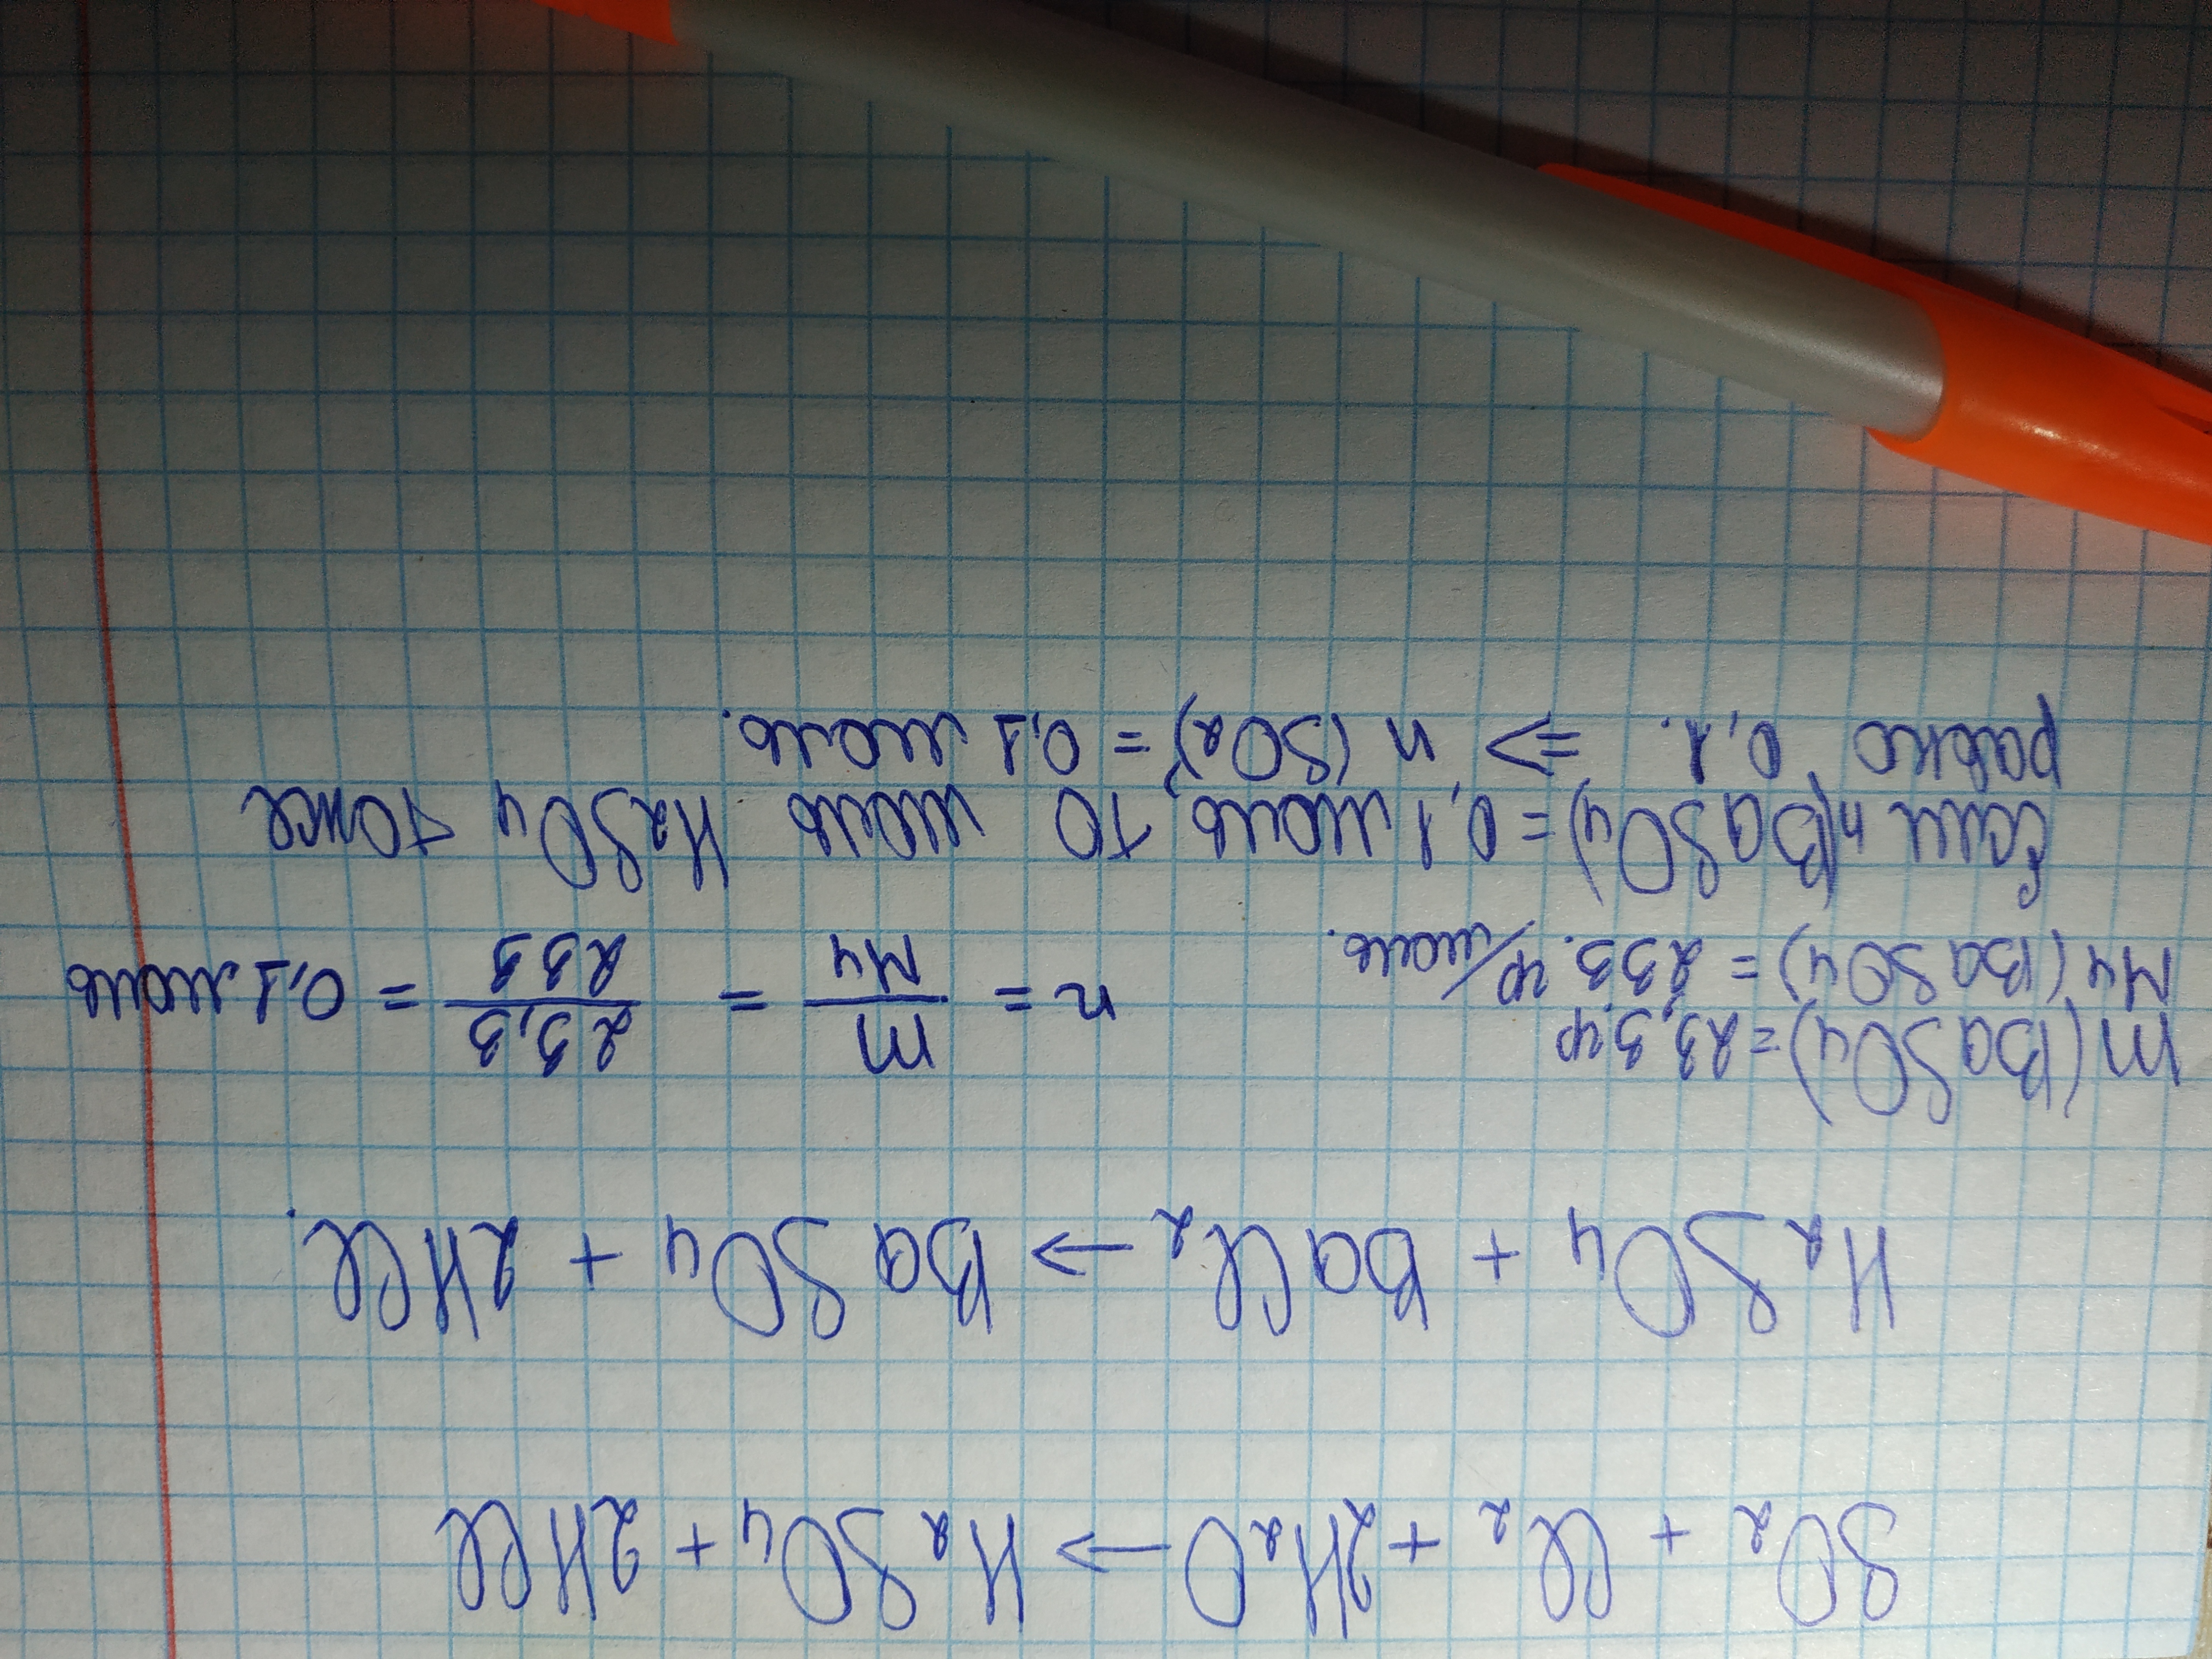 SO₂ + Cl₂ + 2H₂O → H₂SO₄ + 2HCl
H₂SO₄ + BaCl₂ → BaSO₄ + 2HCl.
m(BaSO₄) = 23,3 гр
Mч(BaSO₄) = 233. гр/моль. n = m/Mч = 23,3/233 = 0,1 моль
Если n(BaSO₄) = 0,1 моль, то моль H₂SO₄ тоже
равно 0,1. ⇒ n(SO₂) = 0,1 моль.